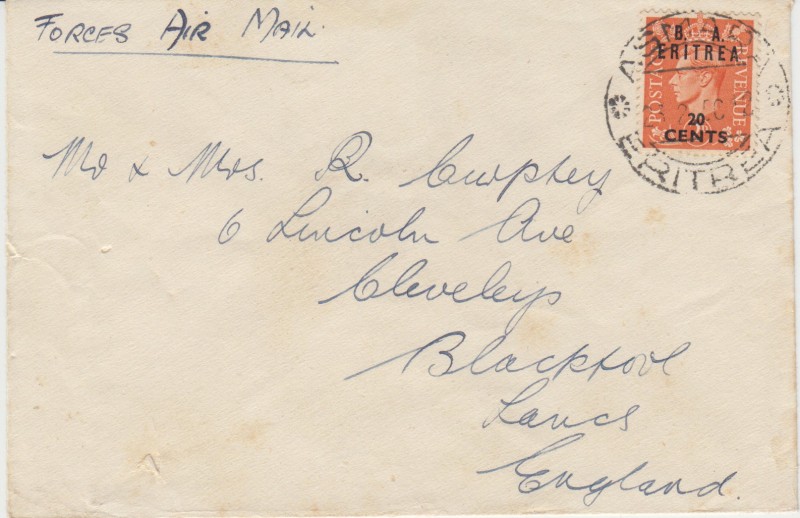 FORCES AIR MAIL.
B. A.
ERITREA
POSTAGE
REVENUE
20
CENTS.
ASMARA
ERITREA
Mr & Mrs. R.
6 Lincoln Ave
Cleveleys
Blackpool
Lancs
England.